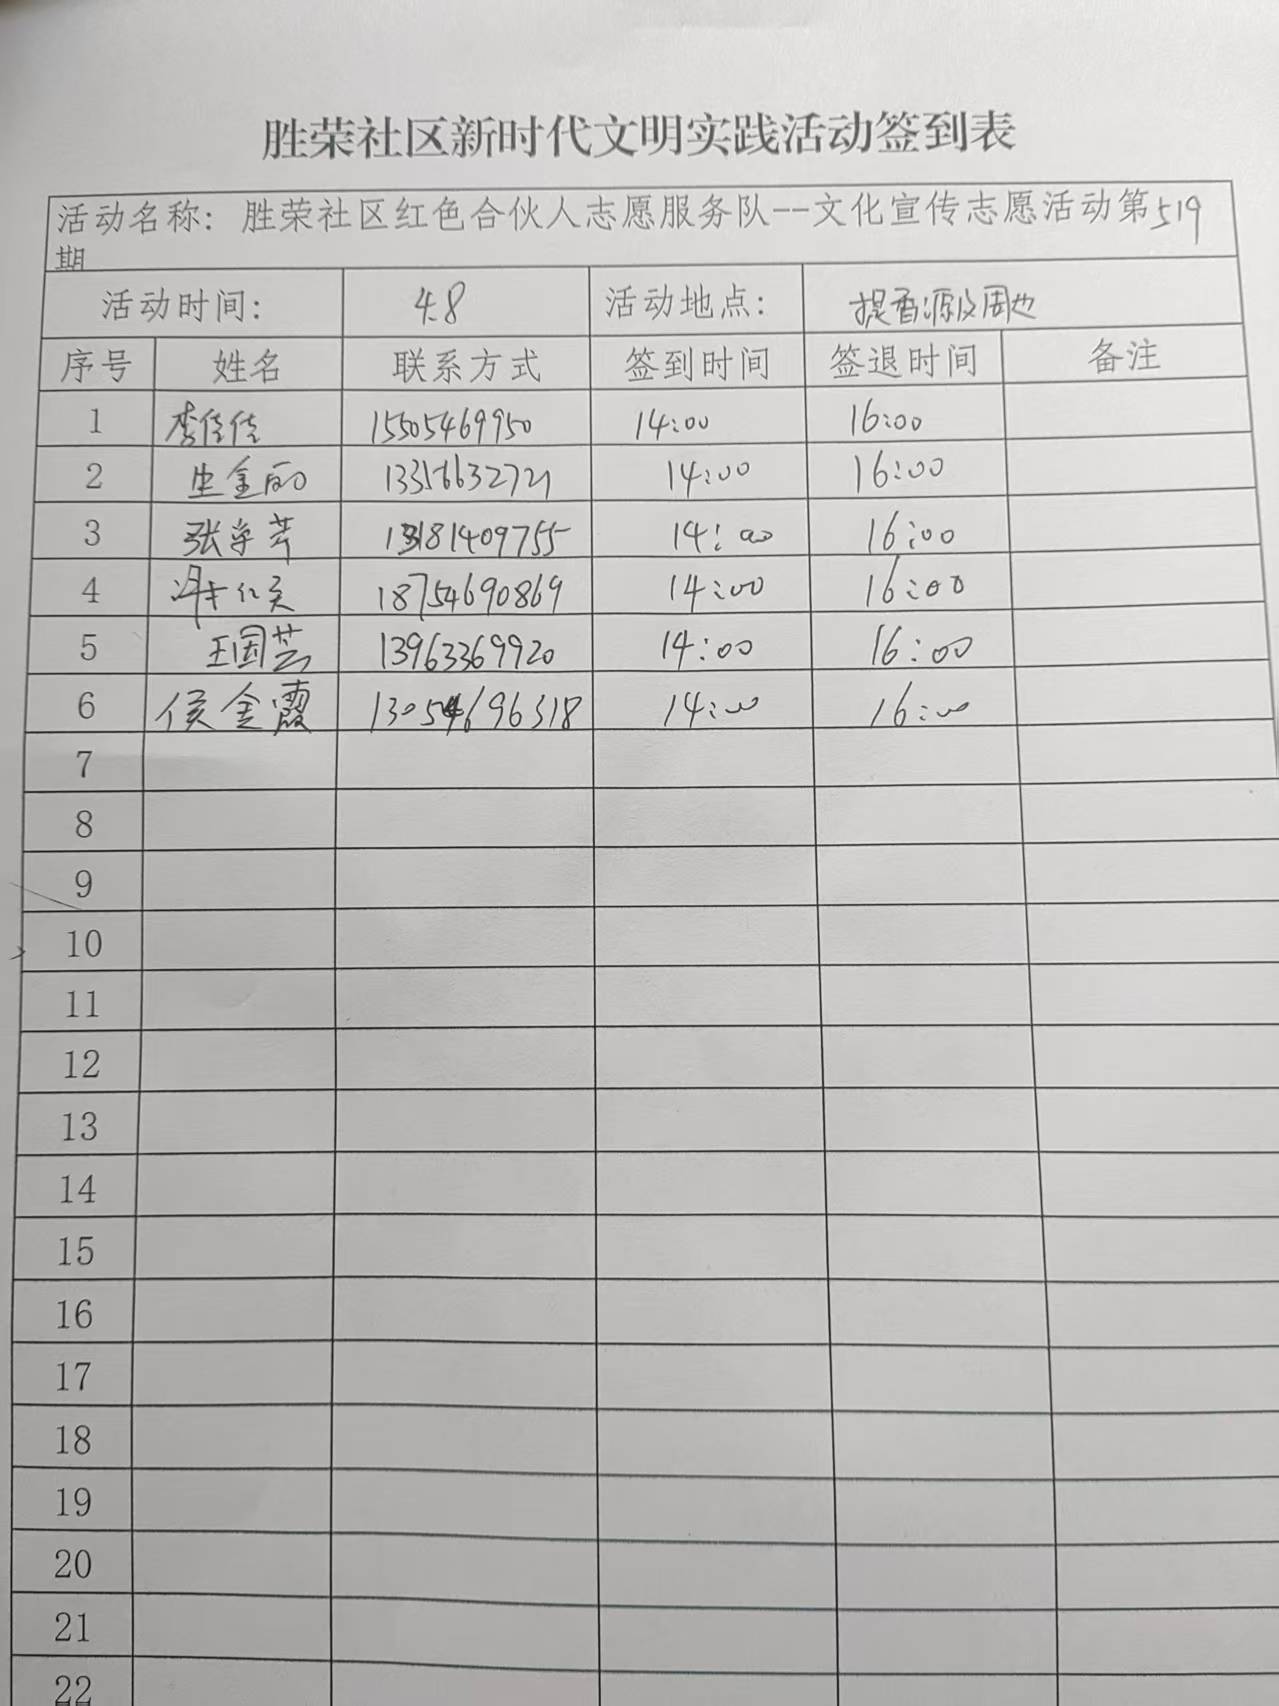 胜荣社区新时代文明实践活动签到表
活动名称：胜荣社区红色合伙人志愿服务队--文化宣传志愿活动第519
期
活动时间： 4.8 活动地点： 提香源及周边
序号 姓名 联系方式 签到时间 签退时间 备注
1 李佳佳 15505469950 14:00 16:00
2 生金丽 14:00 16:00
3 13181409755 14:00 16:00
4 18754690869 14:00 16:00
5 王国芸 13963369920 14:00 16:00
6 侯金霞 13054696318 14:00 16:00
7
8
9
10
11
12
13
14
15
16
17
18
19
20
21
22